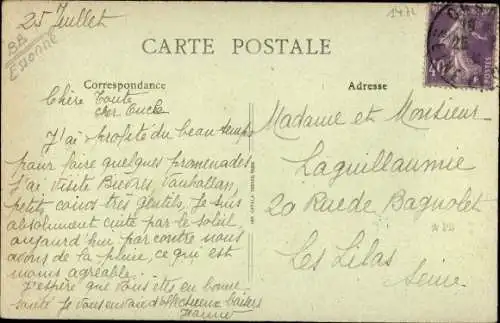 25 Juillet
1471
BB
Essonne
CARTE POSTALE
Correspondance
Adresse
Chère Tante
cher Oncle
J'ai profité du beau temps
pour faire quelques promenades
J'ai visité Bievres, Vauhallan,
petits coins très gentils, Je suis
absolument cuite par le soleil,
aujourd'hui par contre nous
avons de la pluie, ce qui est
moins agréable.
J'espère que vous êtes en bonne
santé Je vous envoie d'affectueux baisers
Jeanne
Madame et Monsieur
Laguillaumie
20 Rue de Bagnolet
Les Lilas
Seine
40c
POSTES